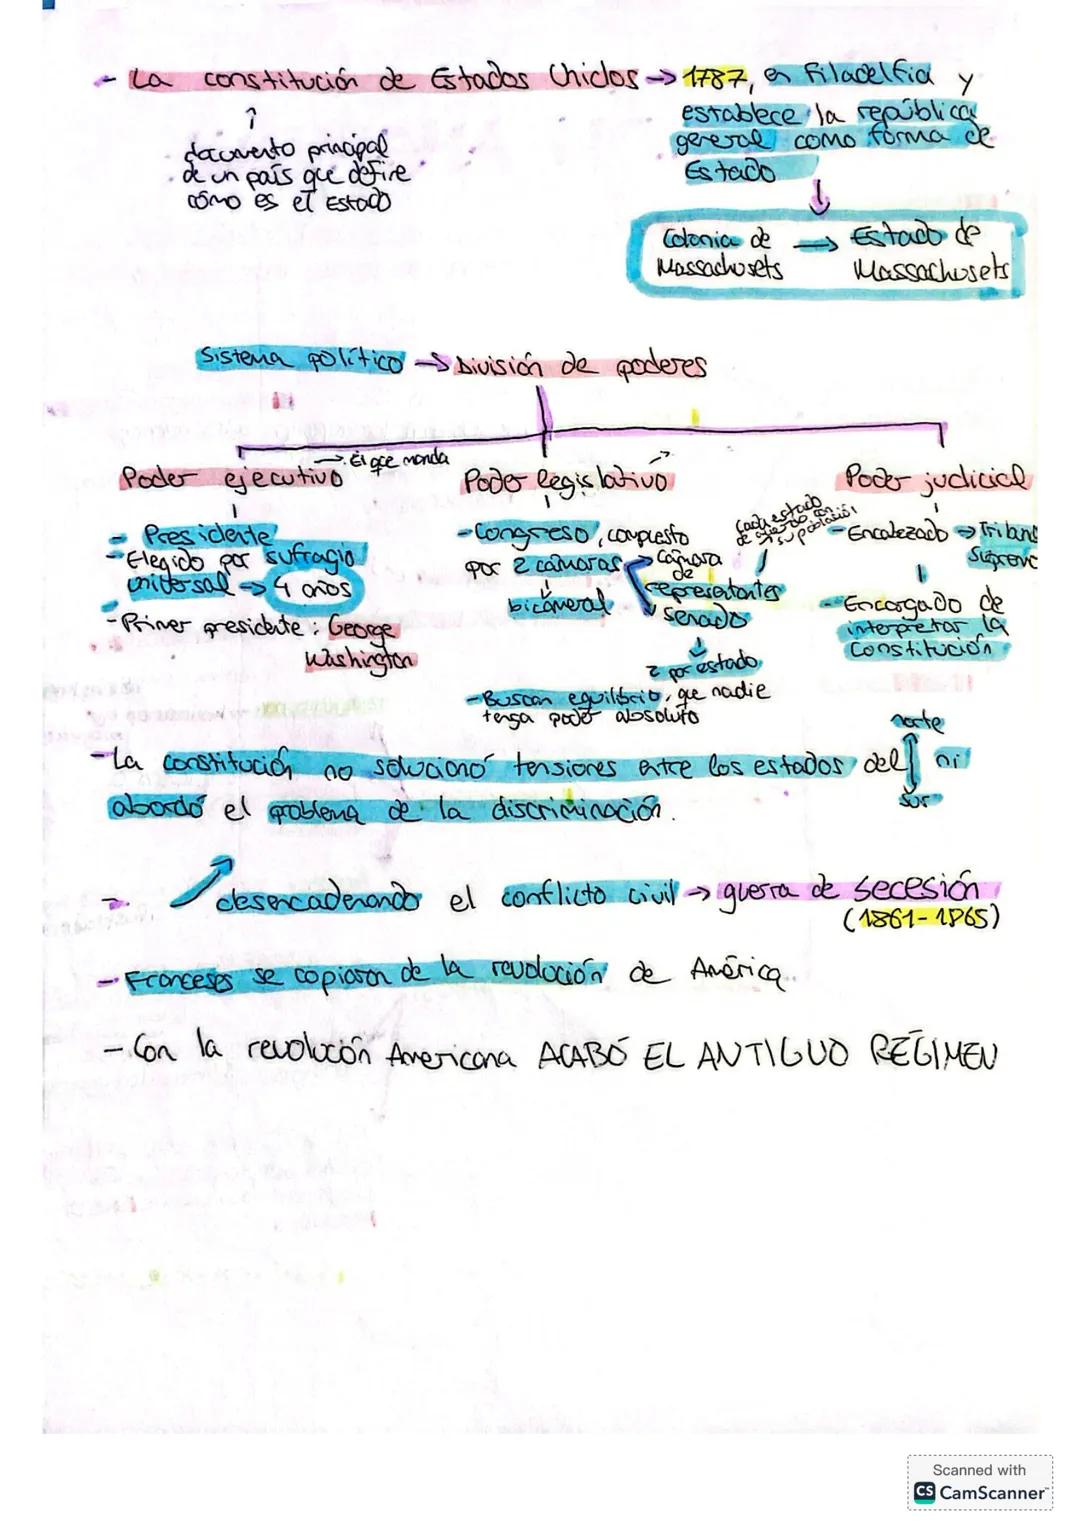 - La constitución de Estados Unidos → 1787, en Filadelfia y
establece la república
general como forma de
Estado
↑
documento principal
de un país que define
cómo es el Estado
↓
Colonia de → Estado de
Massachusets Massachusets
Sistema político → División de poderes
→ El que manda
Poder ejecutivo
- Presidente
- Elegido por sufragio
universal → 4 años
- Primer presidente: George
Washington
Poder legislativo
- Congreso, compuesto
por 2 cámaras
↓
bicameral
→ Cámara
de
representantes
Senado
↓
2 por estado
- Buscan equilibrio, que nadie
tenga poder absoluto
Cada estado
Poder judicial
- Encabezado → Tribun
Suprem
↓
- Encargado de
interpretar la
Constitución
norte
- La constitución no solucionó tensiones entre los estados del ↕ ni
sur
abordó el problema de la discriminación.
- desencadenando el conflicto civil → guerra de secesión
(1861-1865)
- Franceses se copiaron de la revolución de América.
- Con la revolucón Americana ACABÓ EL ANTIGUO RÉGIMEN
Scanned with
CS CamScanner